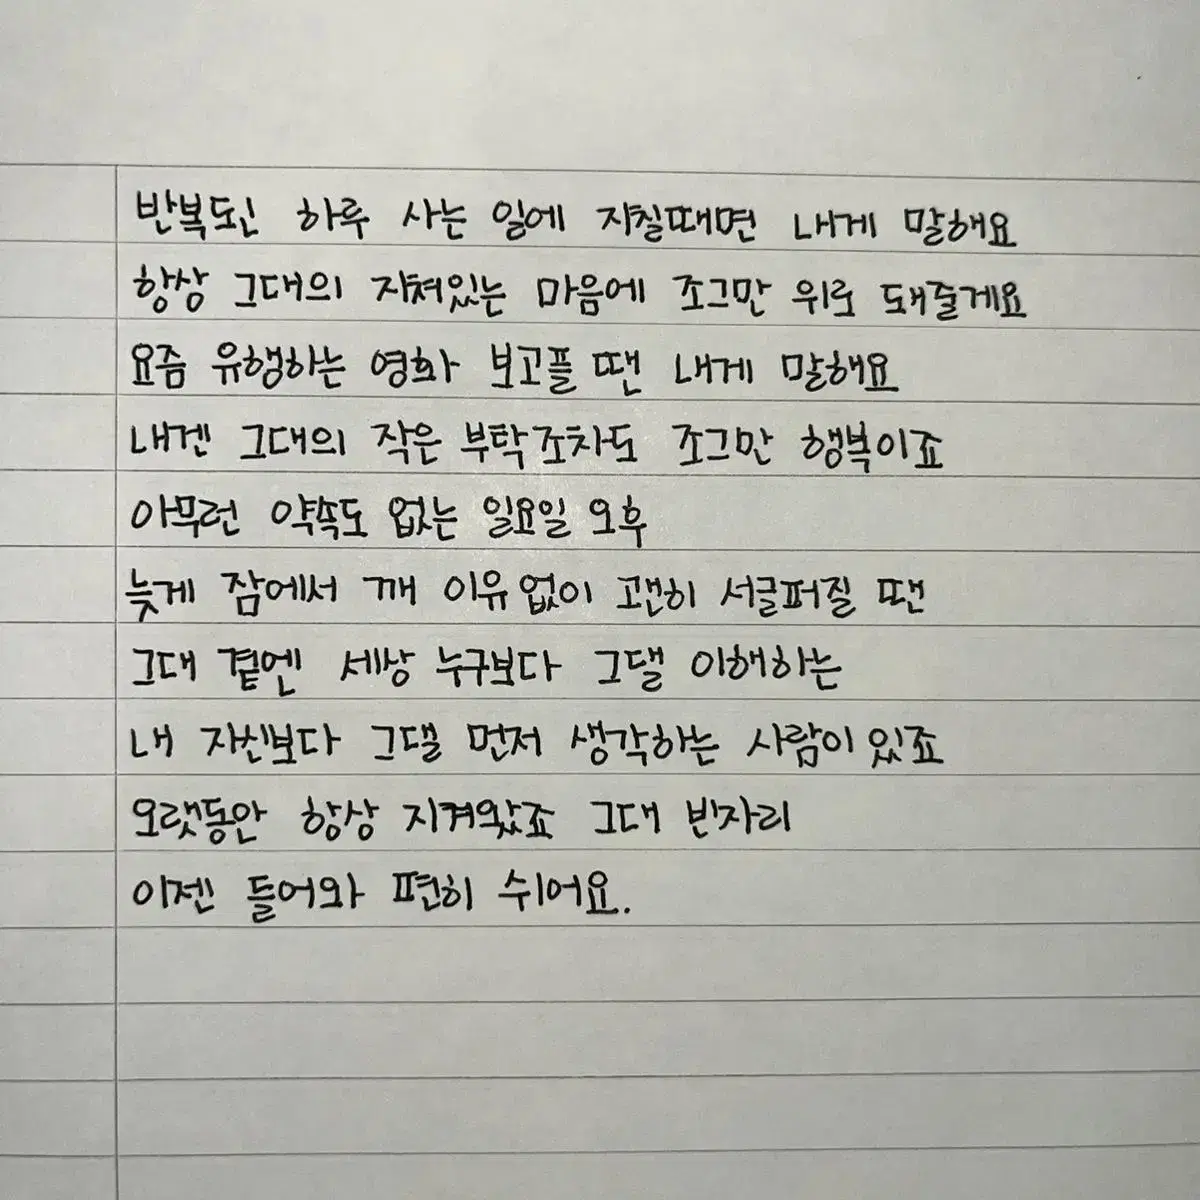 반복된 하루 사는 일에 지칠때면 내게 말해요
항상 그대의 지쳐있는 마음에 조그만 위로 돼줄게요
요즘 유행하는 영화 보고플 땐 내게 말해요
내겐 그대의 작은 부탁조차도 조그만 행복이죠
아무런 약속도 없는 일요일 오후
늦게 잠에서 깨 이유없이 괜히 서글퍼질 땐
그대 곁엔 세상 누구보다 그댈 이해하는
내 자신보다 그댈 먼저 생각하는 사람이 있죠
오랫동안 항상 지켜왔죠 그대 빈자리
이젠 들어와 편히 쉬어요.